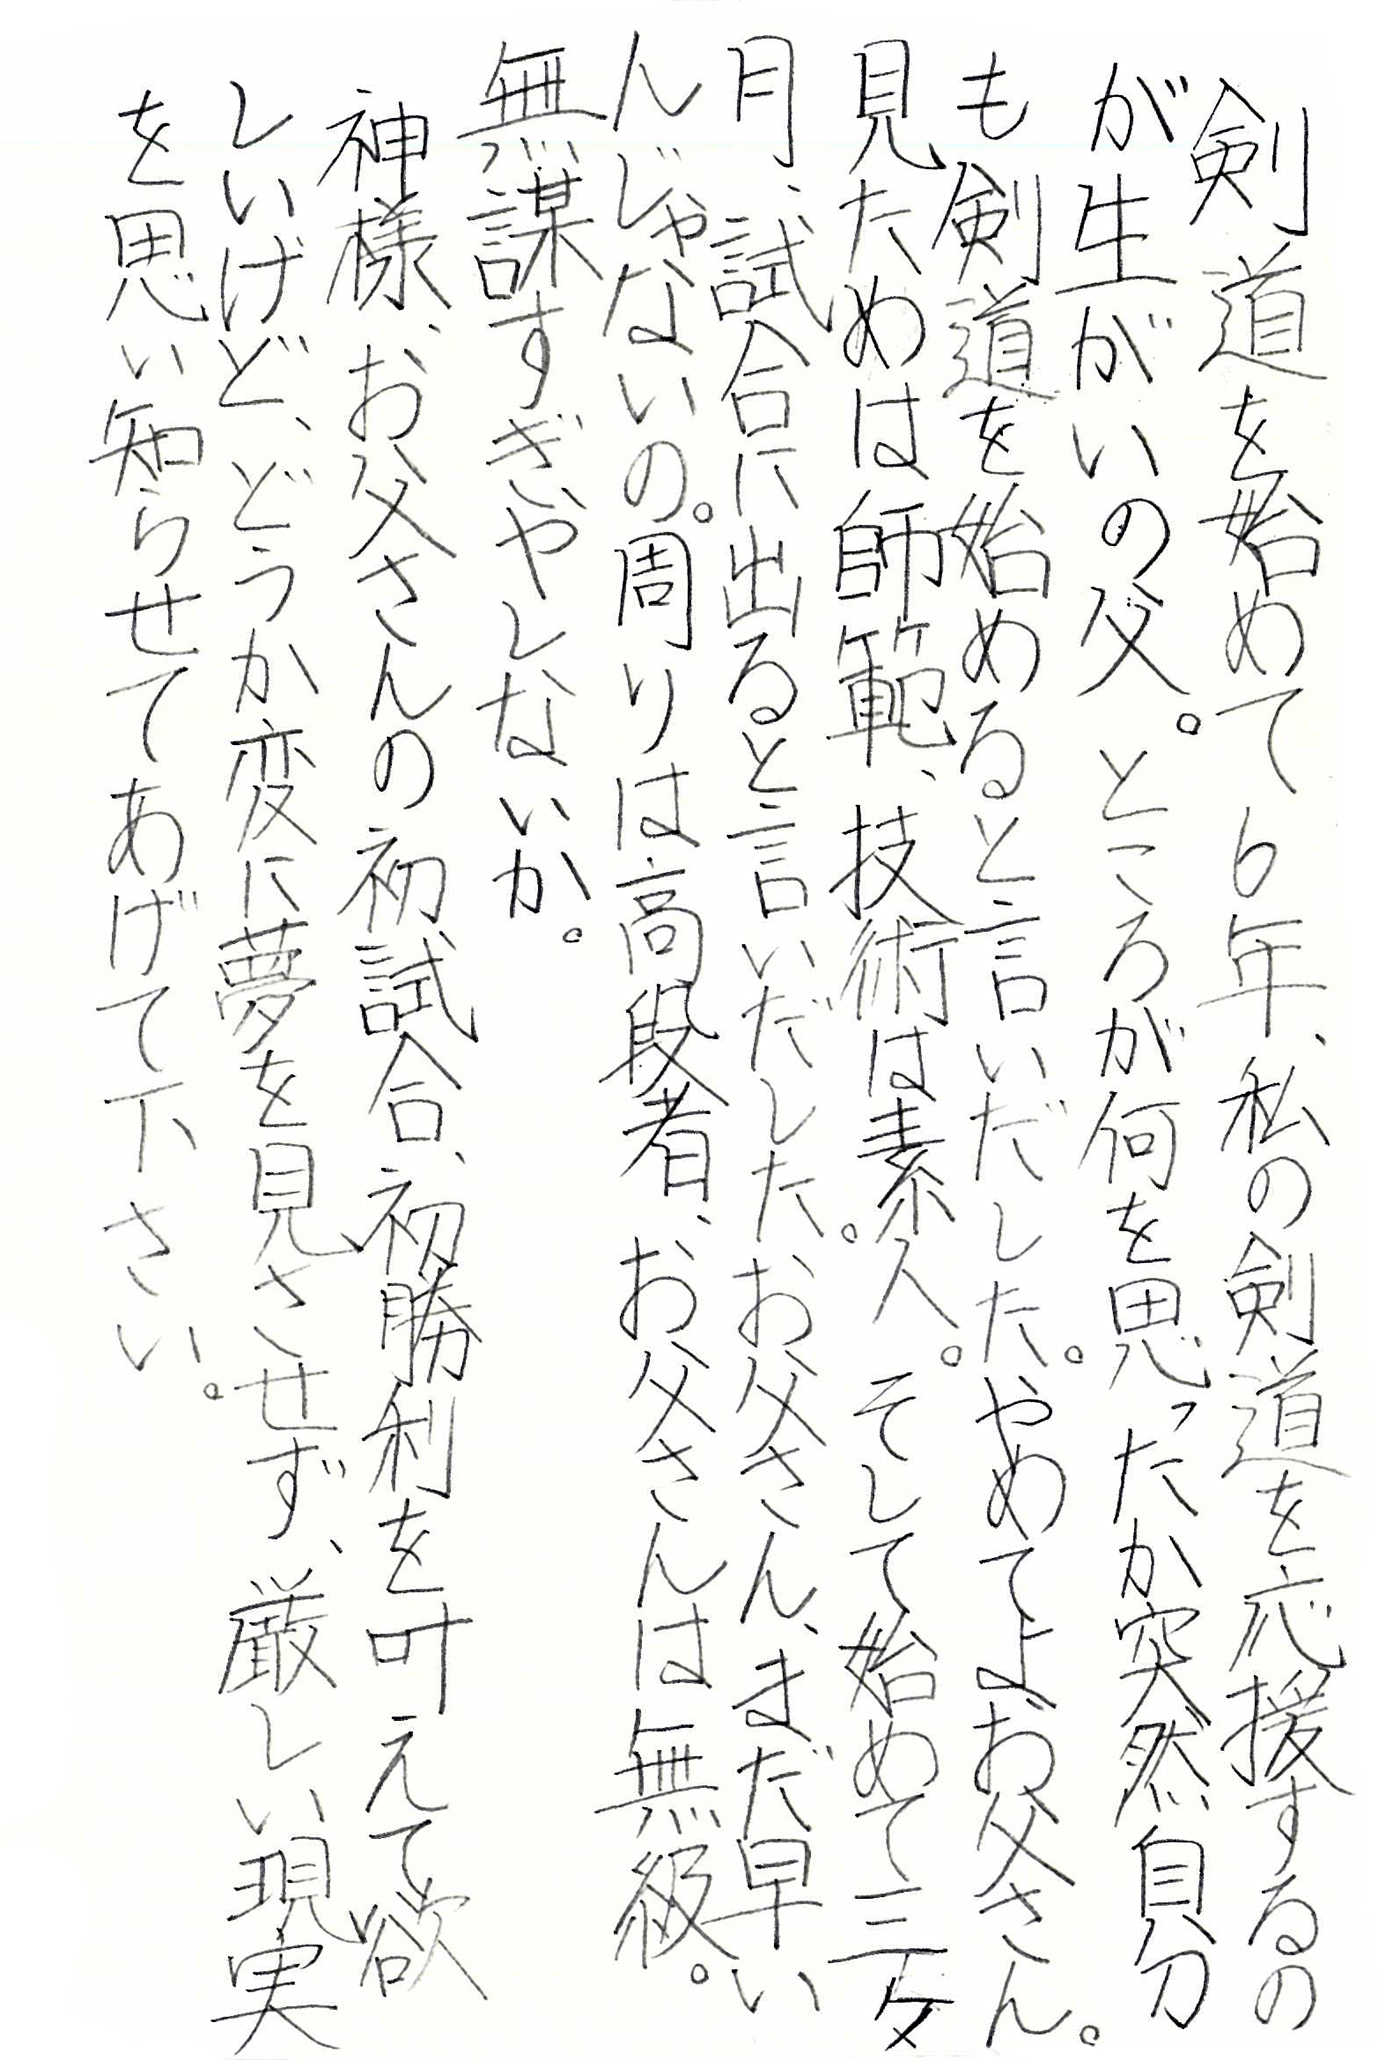 剣道を始めて6年、私の剣道を応援するの
が生がいの父。ところが何を思ったか突然自分
も剣道を始めると言いだした。やめてよお父さん。
見ためは師範、技術は素人。そして始めて三ケ
月、試合に出ると言いだしたお父さん、まだ早い
んじゃないの。周りは高段者、お父さんは無級。
無謀すぎやしないか。
神様、お父さんの初試合、初勝利を叶えて欲
しいけど、どうか変に夢を見させず、厳しい現実
を思い知らせてあげて下さい。